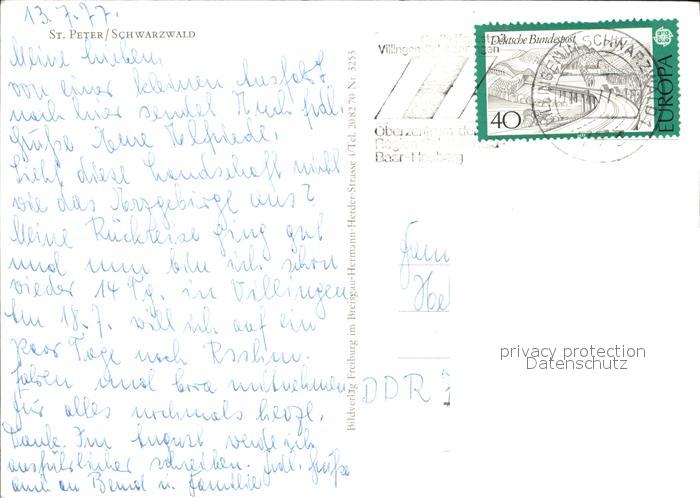 13.7.77.
ST. PETER/SCHWARZWALD
Meine Lieben,
von einer kleinen Ausfahrt
nach hier sendet Euch frdl.
Grüße Eure Elfriede.
Sieht diese Landschaft nicht
wie das Erzgebirge aus?
Meine Rückreise ging gut
und nun bin ich schon
wieder 14 Tg. in Villingen
Am 18.7. will ich auf ein
paar Tage nach
und mitnehmen.
Für alles nochmals herzl.
Dank. Im August werde ich
ausführlicher schreiben. Frdl. Grüße
auch an Bernd u. Familie
Bildverlag Freiburg im Breisgau · Hermann-Herder-Strasse 4/Tel. 208270 Nr. 3253
Villingen-Schwenningen
Oberzentrum der
Region
Baar-Heuberg
Deutsche Bundespost
40
EUROPA
VILLINGEN IM SCHWARZWALD 1
Fam
DDR
privacy protection
Datenschutz